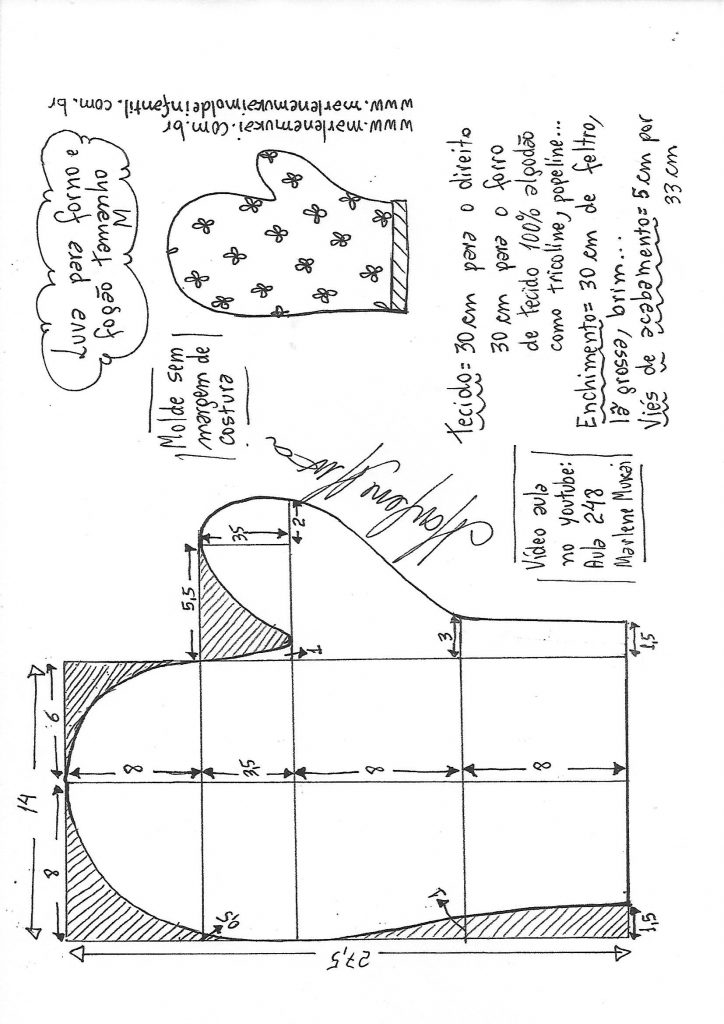 Luva para forno e
fogão tamanho
M
www.marlenemukai.com.br
www.marlenemukaimoldeinfantil.com.br
Molde sem
margem de
costura
Tecido = 30 cm para o direito
30 cm para o forro
de tecido 100% algodão
como tricoline, popeline...
Enchimento = 30 cm de feltro,
lã grossa, brim...
Viés de acabamento = 5 cm por
33 cm
Vídeo aula
no youtube:
Aula 248
Marlene Mukai
14
8
6
5,5
35
2
1
3
1,5
8
3,5
8
8
0,5
1
1,5
27,5